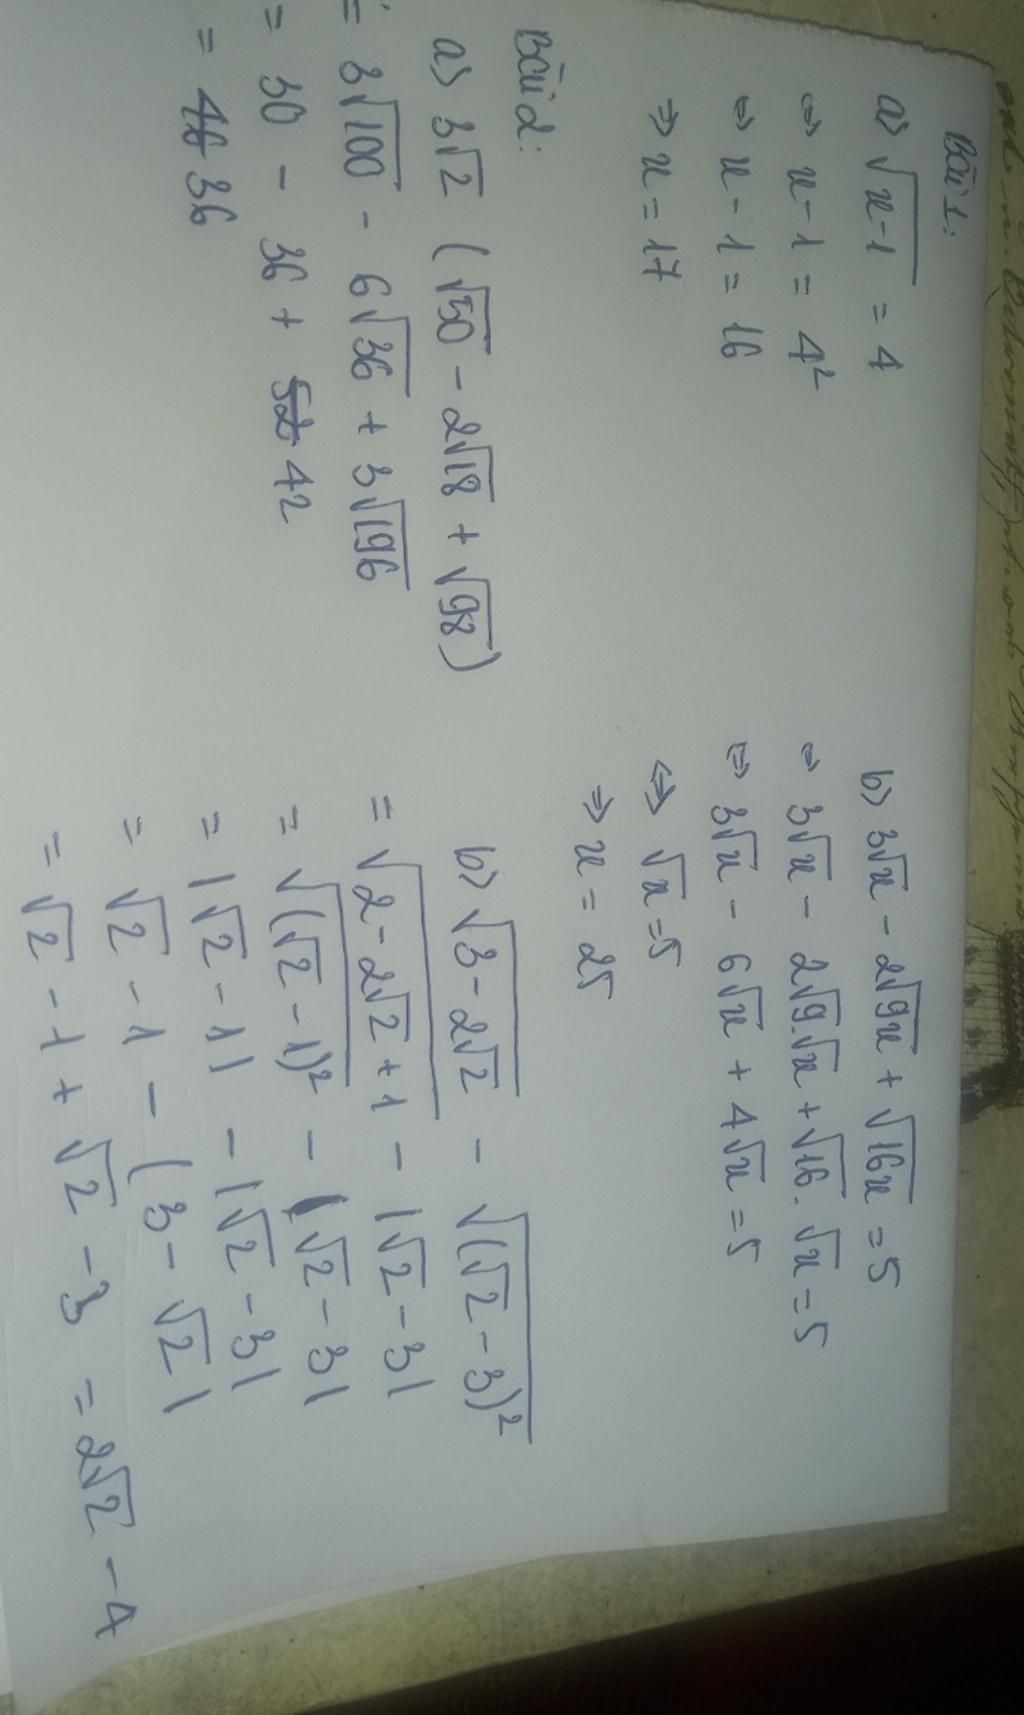 Bài 1:
a) √(x-1) = 4
⇔ x-1 = 4²
⇔ x-1 = 16
⇒ x = 17
b) 3√x - 2√9x + √16x = 5
⇔ 3√x - 2√9.√x + √16.√x = 5
⇔ 3√x - 6√x + 4√x = 5
⇔ √x = 5
⇒ x = 25
Bài 2:
a) 3√2 (√50 - 2√18 + √98)
= 3√100 - 6√36 + 3√196
= 30 - 36 + 42
= 36
b) √(3-2√2) - √((√2-3)²)
= √(2-2√2+1) - |√2-3|
= √((√2-1)²) - |√2-3|
= |√2-1| - |√2-3|
= √2-1 - (3-√2|
= √2-1 + √2-3 = 2√2-4